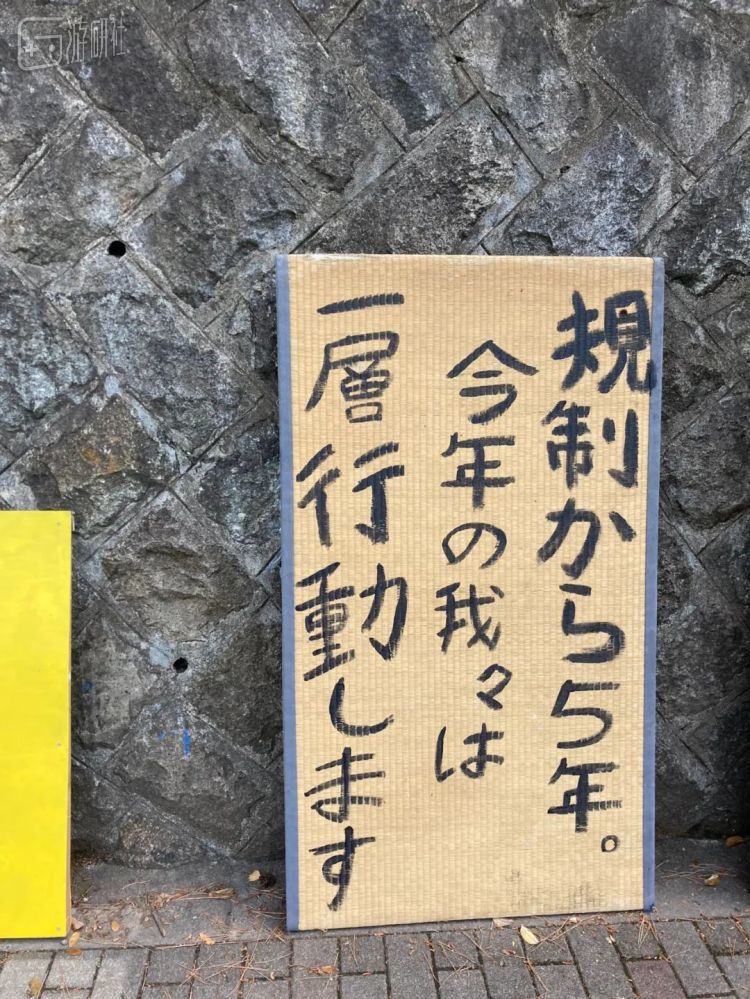 游研社
規制から5年。
今年の我々は
一層行動します